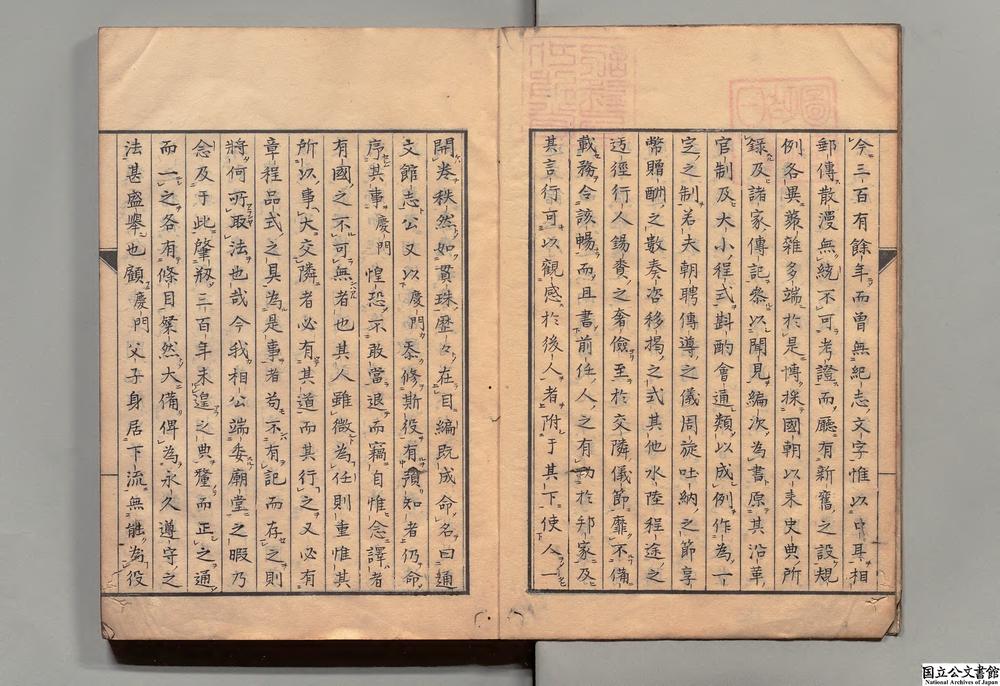 今三百有餘年而曽無紀志文字惟以口耳相
郵傳散漫無統不可考證而廳有新舊之設規
例各異叢雜多端於是博採國朝以来史典所
錄及諸家傳記參以聞見編次為書原其沿革
官制及大小程式斟酌會通類以成例作為一
定之制若夫朝聘傳導之儀周旋吐納之節享
幣贈酬之數奏咨移揭之式其他水陸程途之
迂徑行人錫賚之奢儉至於交隣儀節靡不備
載務令該暢而且書前任人之有功於邦家及
其言行可以觀感於後人者附于其下使人一
開卷秩然如貫珠歷々在目編既成命名曰通
文館志公又以慶門忝修斯役有預知者仍命
序其事慶門惶恐不敢當退而竊自惟念譯者
有國之不可無者也其人雖微為任則重惟其
所以事大交隣者必有其道而其行之又必有
章程品式之具為是事者苟不有記而存之則
將何所取法也哉今我相公端委廟堂之暇乃
念及于此肇刱三百年未遑之典釐而正之通
而一之各有條目粲然大備俾為永久遵守之
法甚盛舉也顧慶門父子身居下流無能為役
国立公文書館
National Archives of Japan